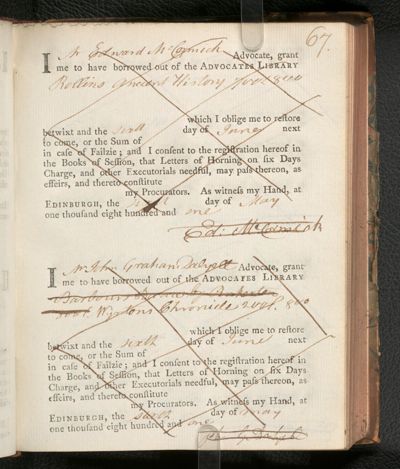 67.
I Mr Edward McCormick Advocate, grant
me to have borrowed out of the ADVOCATES LIBRARY
Rollins Ancient History
which I oblige me to restore
betwixt and the sixth day of June next
to come, or the Sum of
in case of Failzie; and I consent to the registration hereof in
the Books of Session, that Letters of Horning on six Days
Charge, and other Executorials needful, may pass thereon, as
effeirs, and thereto constitute
my Procurators. As witness my Hand, at
EDINBURGH, the sixth day of May
one thousand eight hundred and one
Ed: McCormick
I Mr John Graham Dalyell Advocate, grant
me to have borrowed out of the ADVOCATES LIBRARY
Barbours
Wyntons Chronicle 2 vols. 8vo
which I oblige me to restore
betwixt and the sixth day of June next
to come, or the Sum of
in case of Failzie; and I consent to the registration hereof in
the Books of Session, that Letters of Horning on six Days
Charge, and other Executorials needful, may pass thereon, as
effeirs, and thereto constitute
my Procurators. As witness my Hand, at
EDINBURGH, the sixth day of May
one thousand eight hundred and one